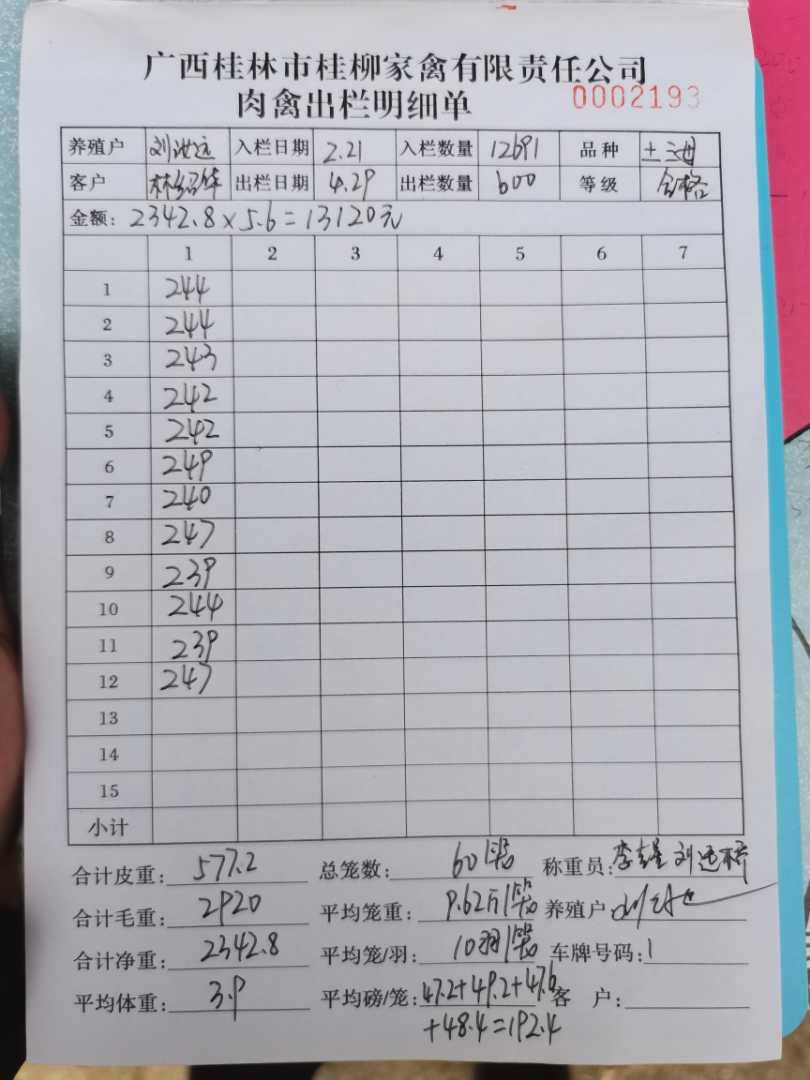 广西桂林市桂柳家禽有限责任公司
肉禽出栏明细单 0002193
养殖户 入栏日期 2.21 入栏数量 12691 品种 土三母
客户 出栏日期 4.29 出栏数量 600 等级 合格
金额: 2342.8×5.6=13120元
1 2 3 4 5 6 7
1 244
2 244
3 243
4 242
5 242
6 249
7 240
8 247
9 239
10 244
11 239
12 247
13
14
15
小计
合计皮重: 577.2 总笼数: 60 称重员:
合计毛重: 2920 平均笼重: 9.62 养殖户:
合计净重: 2342.8 平均笼/羽: 10羽 车牌号码:
平均体重: 3.9 平均磅/笼: 47.2+49.2+47.6 客 户:
+48.4=192.4